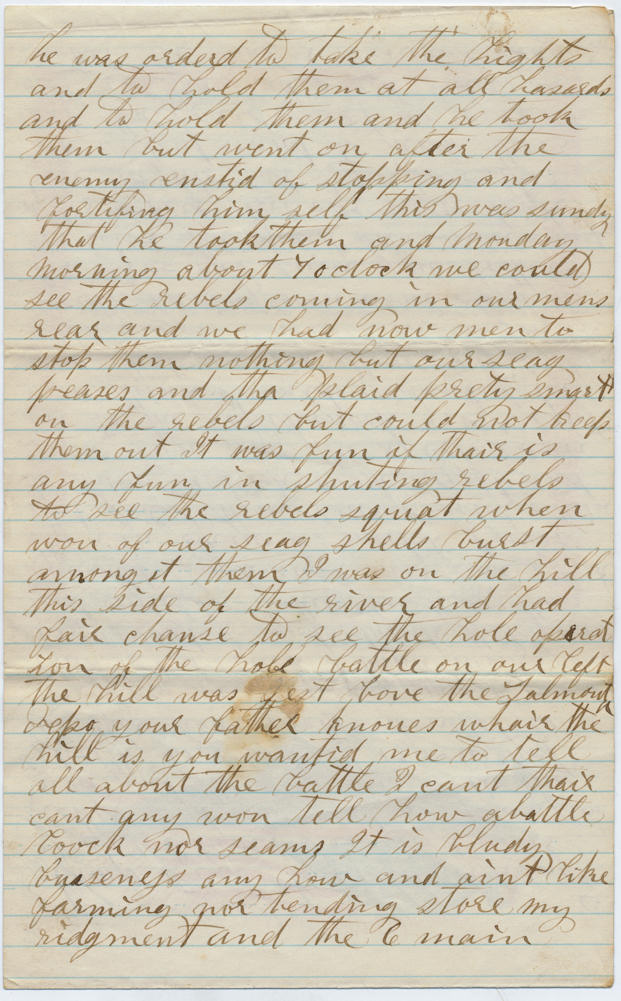 he was orderd to take the hights
and to hold them at all hasards
and to hold them and he took
them but went on after the
enemy enstid of stopping and
fortifing him self this was sundy
that he took them and Monday
morning about 7 oclock we could
see the rebels coming in our mens
rear and we had now men to
stop them nothing but our seag
peases and tha plaid prety smart
on the rebels but could not keep
them out It was fun if thair is
any fun in shuting rebels
to see the rebels squat when
won of our seag shells burst
amongst them I was on the hill
this side of the river and had
fair chanse to see the hole operat
ion of the hole battle on our left
the hill was jest bove the Falmouth
depo your father knoues whair the
hill is you wantid me to tell
all about the battle I cant thair
cant any won tell how a battle
loock nor seams It is bludy
buseness any how and aint like
farming nor tending store my
ridgment and the 6 main